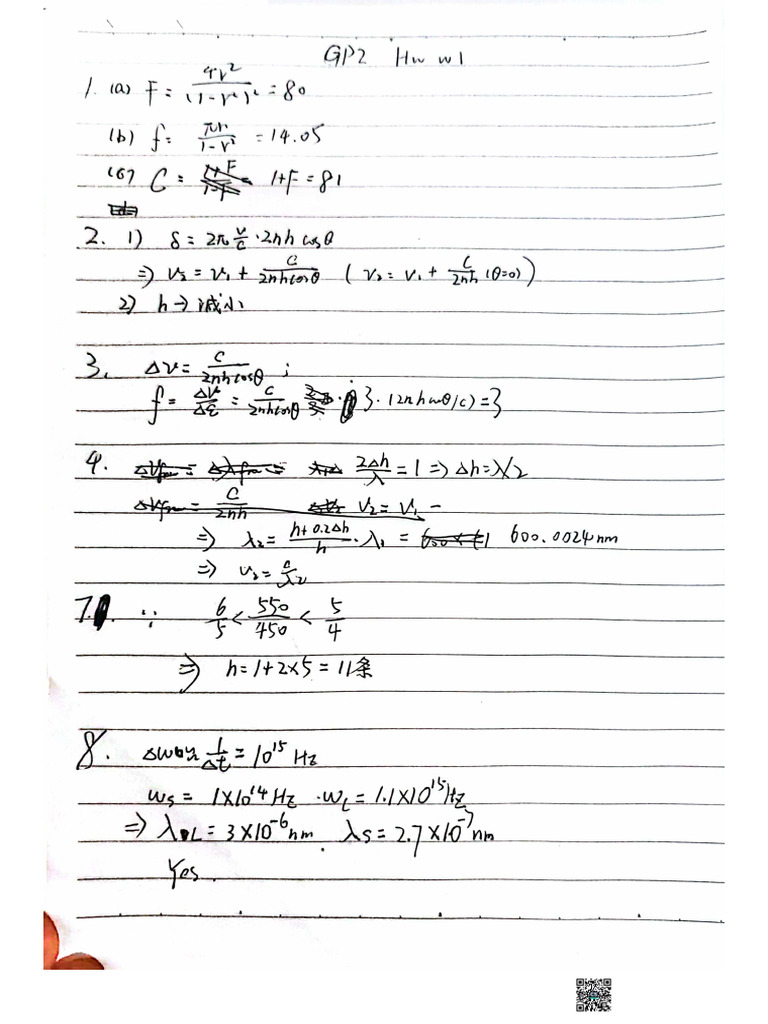 GP2 Hw w1
1. (a) F = 4r² / (1-r²)² = 80
(b) f = πr / 1-r² = 14.05
(c) C = 1+F = 81
2. 1) δ = 2π ν/c · 2nh cosθ
⇒ ν₂ = ν₁ + c / 2nhcosθ ( ν₂ = ν₁ + c / 2nh (θ=0) )
2) h → 减小
3. Δν = c / 2nhcosθ ;
f = Δν / Δε = c / 2nhcosθ · 3 · (2nhcosθ/c) = 3
4. 2Δh / λ = 1 ⇒ Δh = λ/2
ν₂ = ν₁ -
⇒ λ₂ = h+0.2Δh / h · λ₁ = 600.0024nm
⇒ ν₂ = c / λ₂
7. ∵ 6/5 < 550/450 < 5/4
⇒ h = 1+2×5 = 11条
8. 1/Δt = 10¹⁵ Hz
ws = 1×10¹⁴Hz · wL = 1.1×10¹⁵Hz
⇒ λL = 3×10⁻⁶nm . λs = 2.7×10⁻⁷nm
Yes.